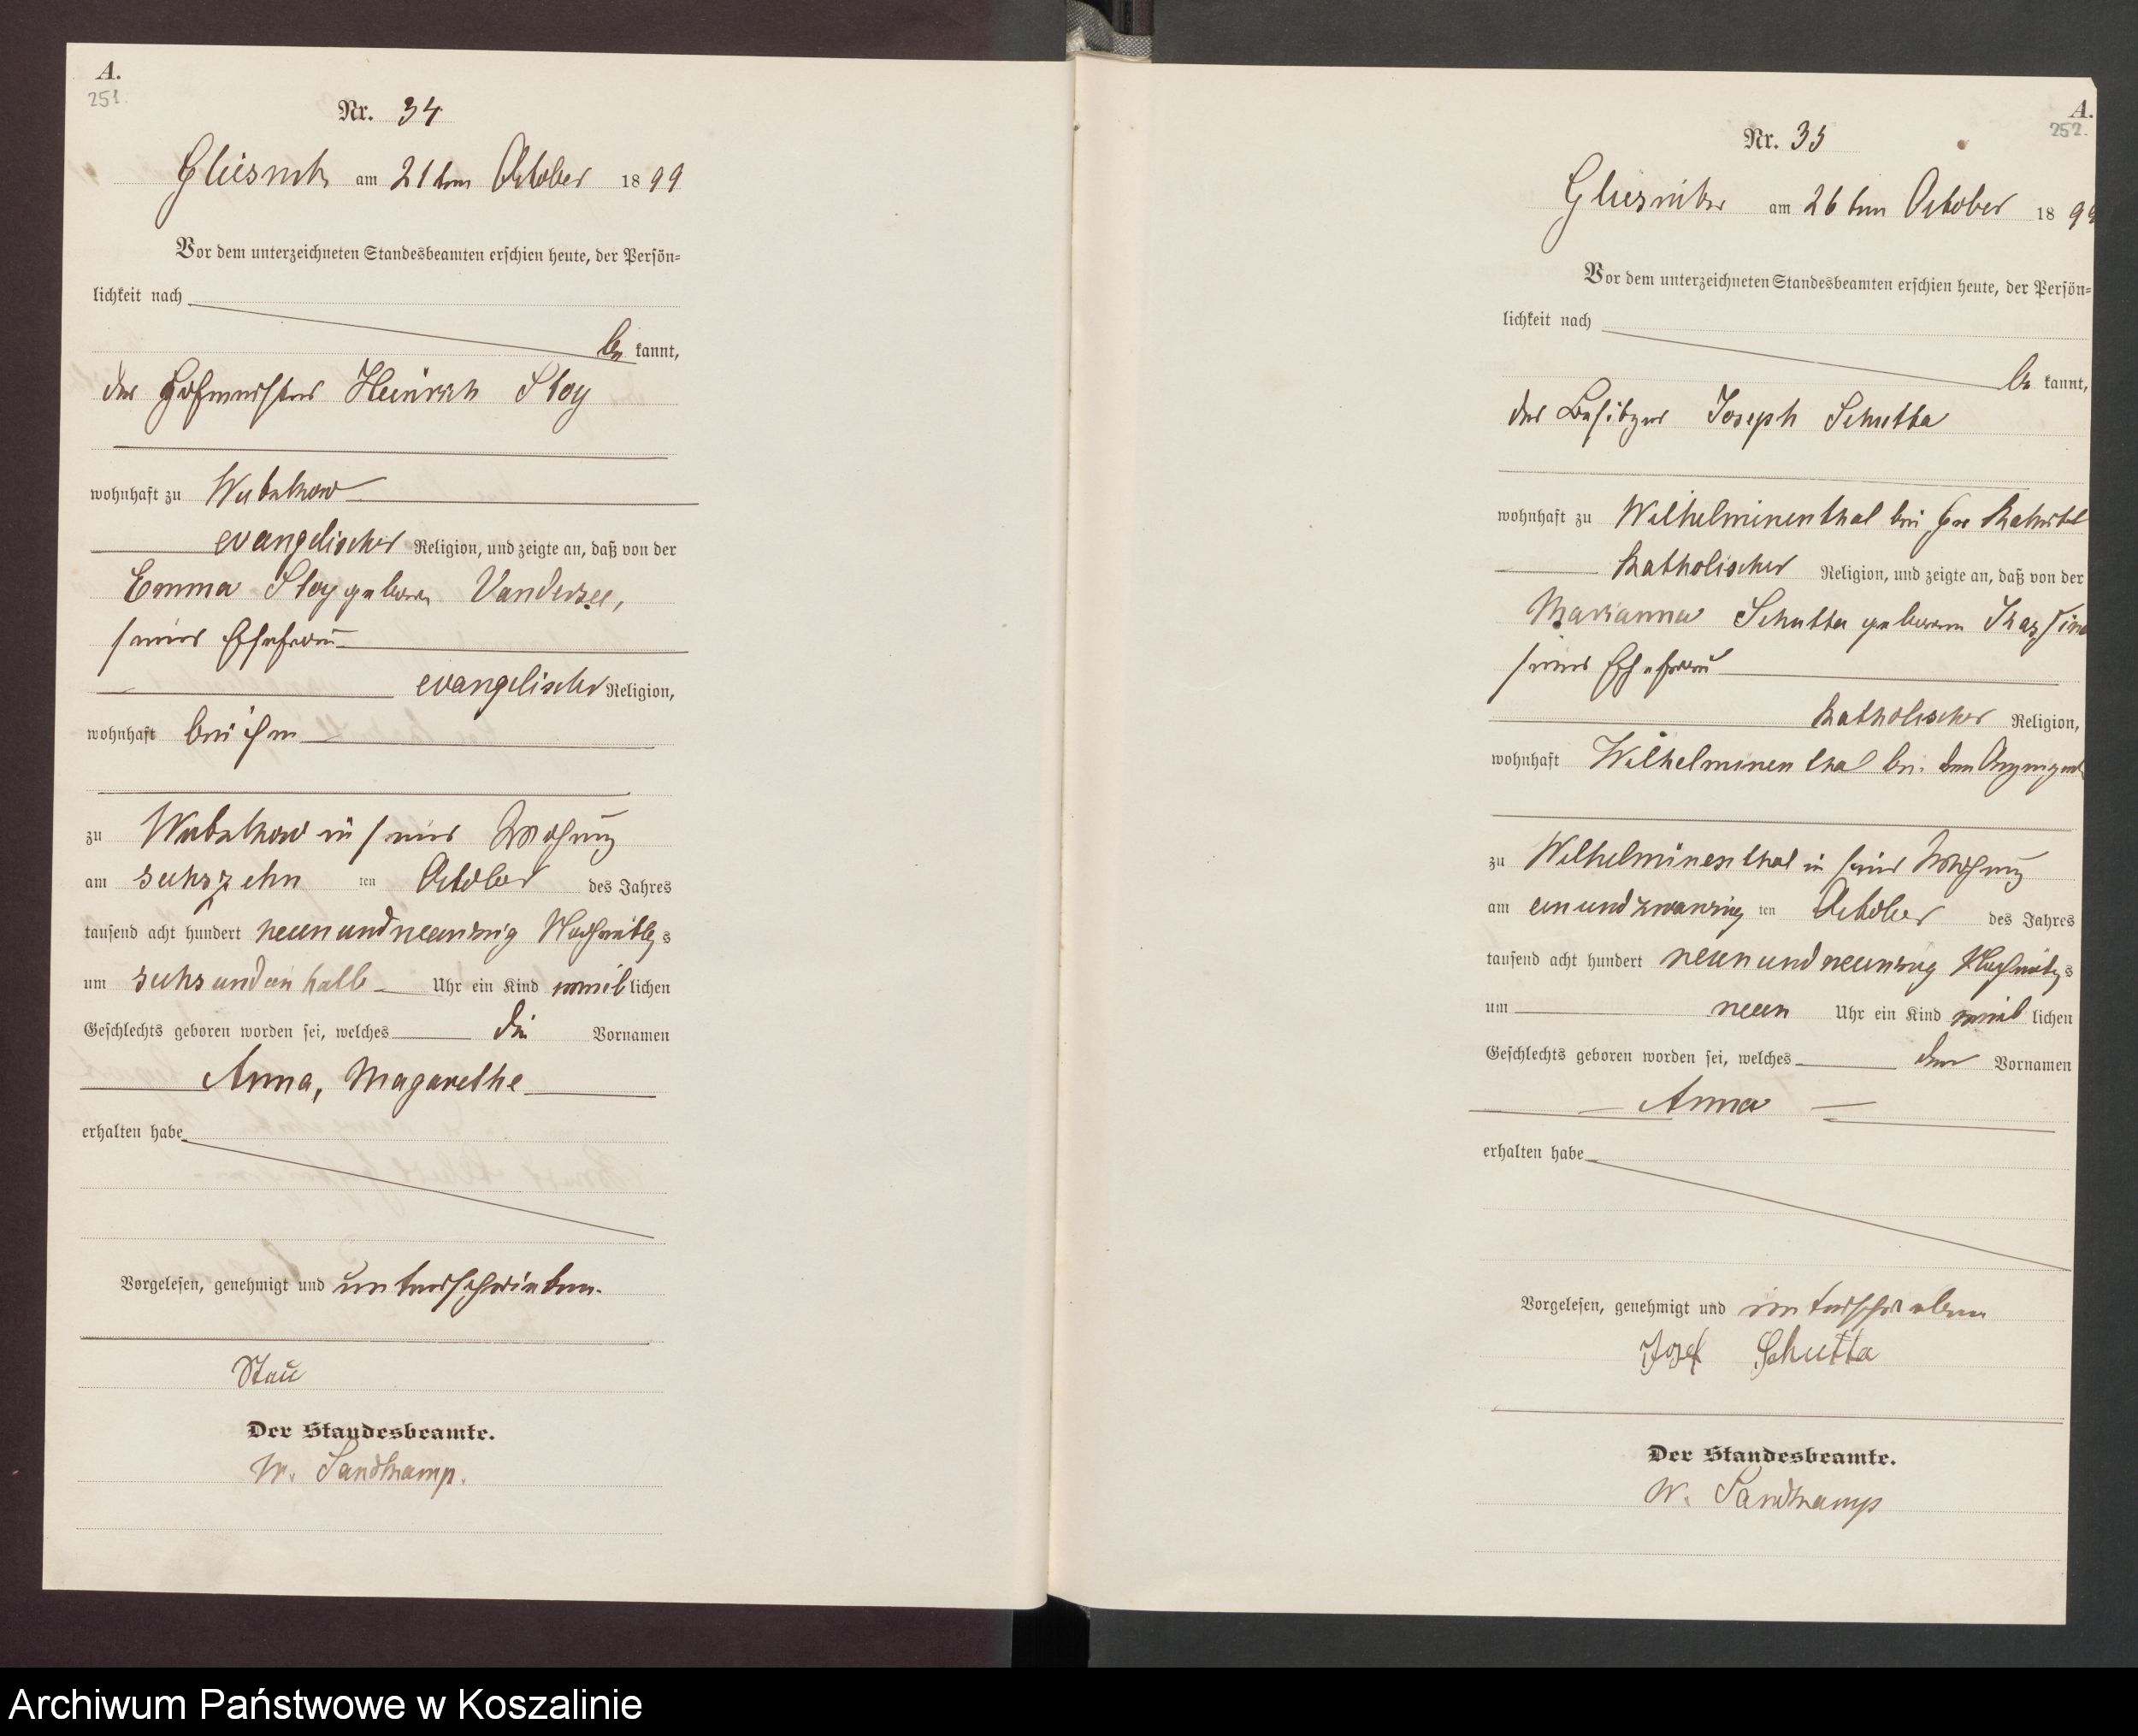 A.
251.
Nr. 34
Gliesnitz am 21ten October 1899
Vor dem unterzeichneten Standesbeamten erschien heute, der Persön-
lichkeit nach
be kannt,
der Hofmeister Heinrich Stoy
wohnhaft zu Wubatkow
evangelischer Religion, und zeigte an, daß von der
Emma Stoy geboren Vandersee,
seiner Ehefrau
evangelischer Religion,
wohnhaft bei ihm
zu Wubatkow in seiner Wohnung
am sechszehn ten October des Jahres
tausend acht hundert neunundneunzig Nachmittags
um sechsundein halb Uhr ein Kind weiblichen
Geschlechts geboren worden sei, welches die Vornamen
Anna, Magarethe
erhalten habe
Vorgelesen, genehmigt und unterschrieben.
Stau
Der Standesbeamte.
W. Sandkamp.
A.
252.
Nr. 35
Gliesnitz am 26ten October 1899
Vor dem unterzeichneten Standesbeamten erschien heute, der Persön-
lichkeit nach
be kannt,
der Besitzer Joseph Schutta
wohnhaft zu Wilhelminenthal bei Gr
katholischer Religion, und zeigte an, daß von der
Marianna Schutta geboren
seiner Ehefrau
katholischer Religion,
wohnhaft Wilhelminenthal bei dem
zu Wilhelminenthal in seiner Wohnung
am einundzwanzig ten October des Jahres
tausend acht hundert neunundneunzig Nachmittags
um neun Uhr ein Kind weib lichen
Geschlechts geboren worden sei, welches den Vornamen
Anna
erhalten habe
Vorgelesen, genehmigt und unterschrieben
Josef Schutta
Der Standesbeamte.
W. Sandkamp
Archiwum Państwowe w Koszalinie